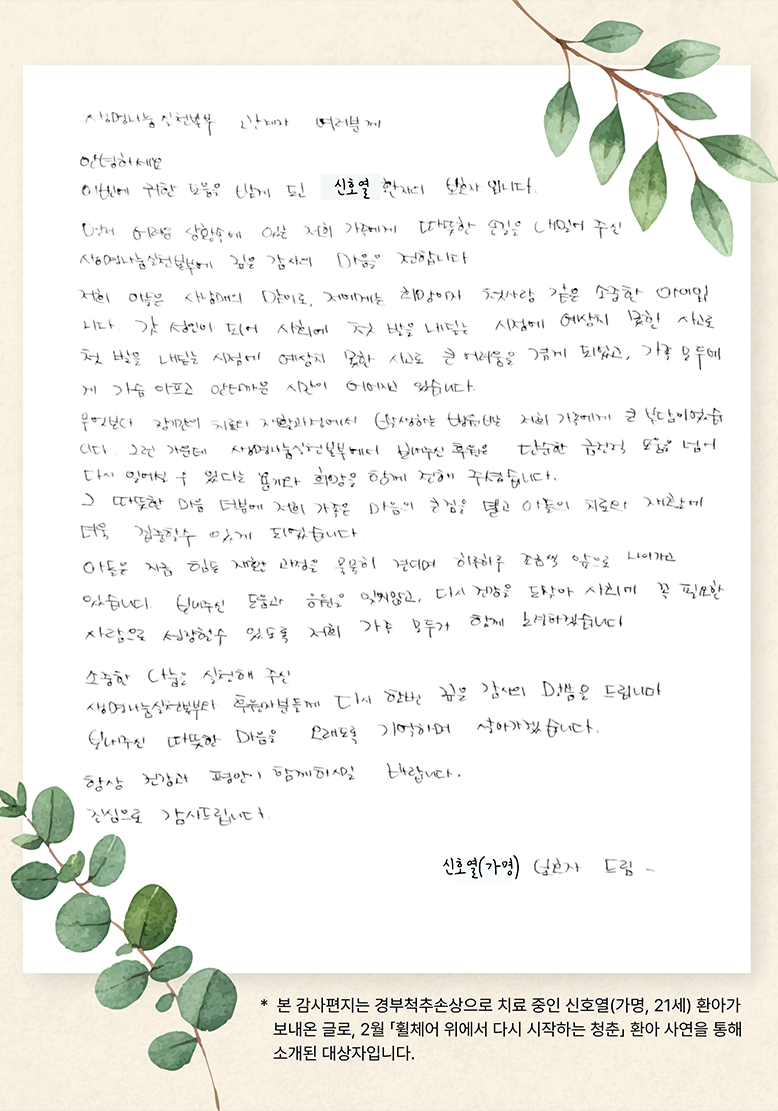 생명나눔실천본부 관계자 여러분께
안녕하세요
이번에 귀한 도움을 받게 된 신호열 환자의 보호자 입니다.
먼저 어려운 상황속에 있는 저희 가족에게 따뜻한 손길을 내밀어 주신
생명나눔실천본부에 깊은 감사의 마음을 전합니다
저희 아들은 사남매의 맏이로, 저에게는 희망이자 첫사랑 같은 소중한 아이입
니다. 갓 성인이 되어 사회에 첫 발을 내딛는 시점에 예상치 못한 사고로
첫 발을 내딛는 시점에 예상치 못한 사고로 큰 어려움을 겪게 되었고, 가족 모두에
게 가슴 아프고 안타까운 시간이 이어지고 있습니다.
무엇보다 장기간의 치료와 재활과정에서 발생하는 병원비는 저희 가족에게 큰 부담이었습
니다. 그런 가운데 생명나눔실천본부에서 보내주신 후원은 단순한 금전적 도움을 넘어
다시 일어설 수 있다는 용기와 희망을 함께 전해 주셨습니다.
그 따뜻한 마음 덕분에 저희 가족은 마음의 큰짐을 덜고 아들의 치료와 재활에
더욱 집중할수 있게 되었습니다.
아들은 지금 힘든 재활 과정을 묵묵히 견디며 하루하루 조금씩 앞으로 나아가고
있습니다. 보내주신 도움과 응원을 잊지않고, 다시 건강을 되찾아 사회에 꼭 필요한
사람으로 성장할수 있도록 저희 가족 모두가 함께 노력하겠습니다
소중한 나눔을 실천해 주신
생명나눔실천본부와 후원자분들께 다시 한번 깊은 감사의 말씀을 드립니다
보내주신 따뜻한 마음을 오래도록 기억하며 살아가겠습니다.
항상 건강과 평안이 함께하시길 바랍니다.
진심으로 감사드립니다.
신호열(가명) 보호자 드림 -
* 본 감사편지는 경부척추손상으로 치료 중인 신호열(가명, 21세) 환아가
보내온 글로, 2월 「휠체어 위에서 다시 시작하는 청춘」 환아 사연을 통해
소개된 대상자입니다.